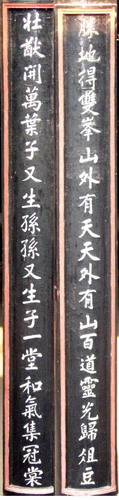 勝地得雙峯山外有天天外有山百道靈光歸俎豆
壯猷開萬葉子又生孫孫又生子一堂和氣集冠裳